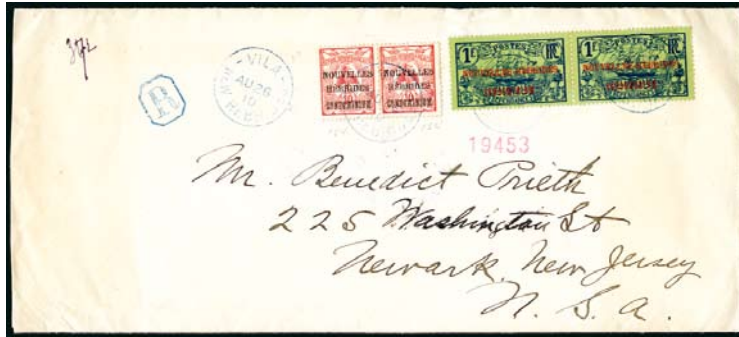 VILA
AU 26
10
NEW HEBR
R
NOUVELLES
HEBRIDES
CONDOMINIUM
NOUVELLES
HEBRIDES
CONDOMINIUM
1F POSTES RF
NOUVELLES HEBRIDES
CONDOMINIUM
1F POSTES RF
NOUVELLES HEBRIDES
CONDOMINIUM
19453
Mr. Benedict Prieth
225 Washington St
Newark, New Jersey
U. S. a.